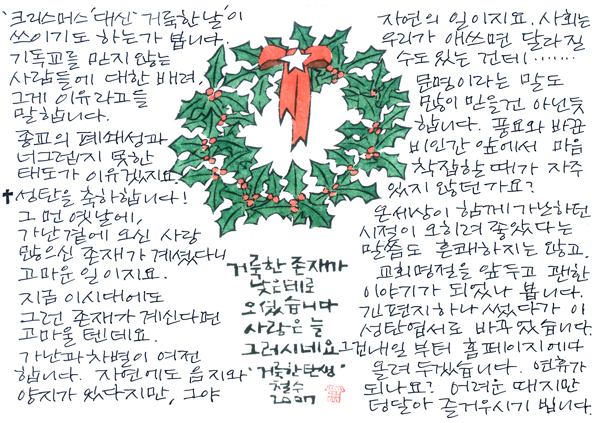 '크리스머스' 대신 '거룩한 날'이
쓰이기도 하는가 봅니다.
기독교를 믿지 않는
사람들에 대한 배려,
그게 이유라고들
말합니다.
종교의 폐쇄성과
너그럽지 못한
태도가 이유겠지요.
✝성탄을 축하합니다!
그 먼 옛날에,
가난 곁에 오신 사랑
많으신 존재가 계셨다니
고마운 일이지요.
지금 이시대에도
그런 존재가 계신다면
고마울 텐데요.
가난과 차별이 여전
합니다. 자연에도 음지와
양지가 있다지만, 그야
거룩한 존재가
낮은데로
오셨습니다
사랑은 늘
그러시네요
"거룩한탄생"
철수
2007
자연의 일이지요. 사회는
우리가 애쓰면 달라질
수도 있는 건데.......
문명이라는 말도
많이 믿을건 아닌듯
합니다. 풍요와 바꾼
비인간 앞에서 마음
착잡할때가 자주
있지 않던가요?
온세상이 함께 가난하던
시절이 오히려 좋았다는
말씀도 흔쾌하지는 않고.
교회명절을 앞두고 괜한
이야기가 되었나 봅니다.
긴편지하나 썼다가 이
성탄엽서로 바꾸었습니다.
그건 내일 부터 홈페이지에다
올려 두겠습니다. 연휴가
되나요? 어려운 때지만
덩달아 즐거우시기 빕니다.